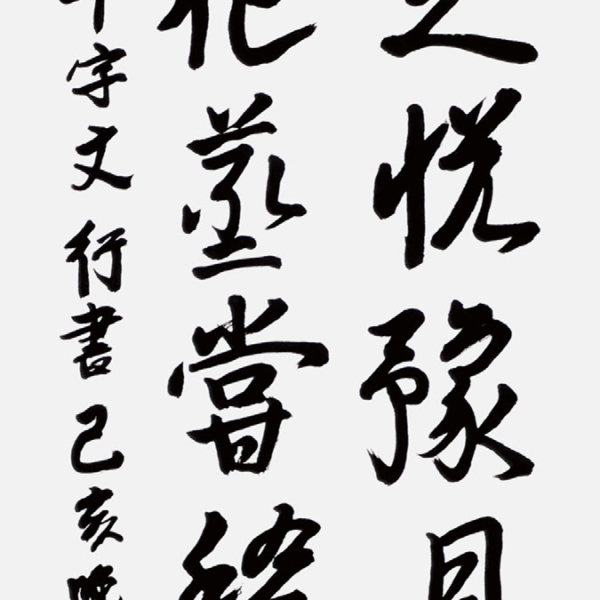 足悅豫且
祀蒸嘗稽
千字文 行書 己亥晚